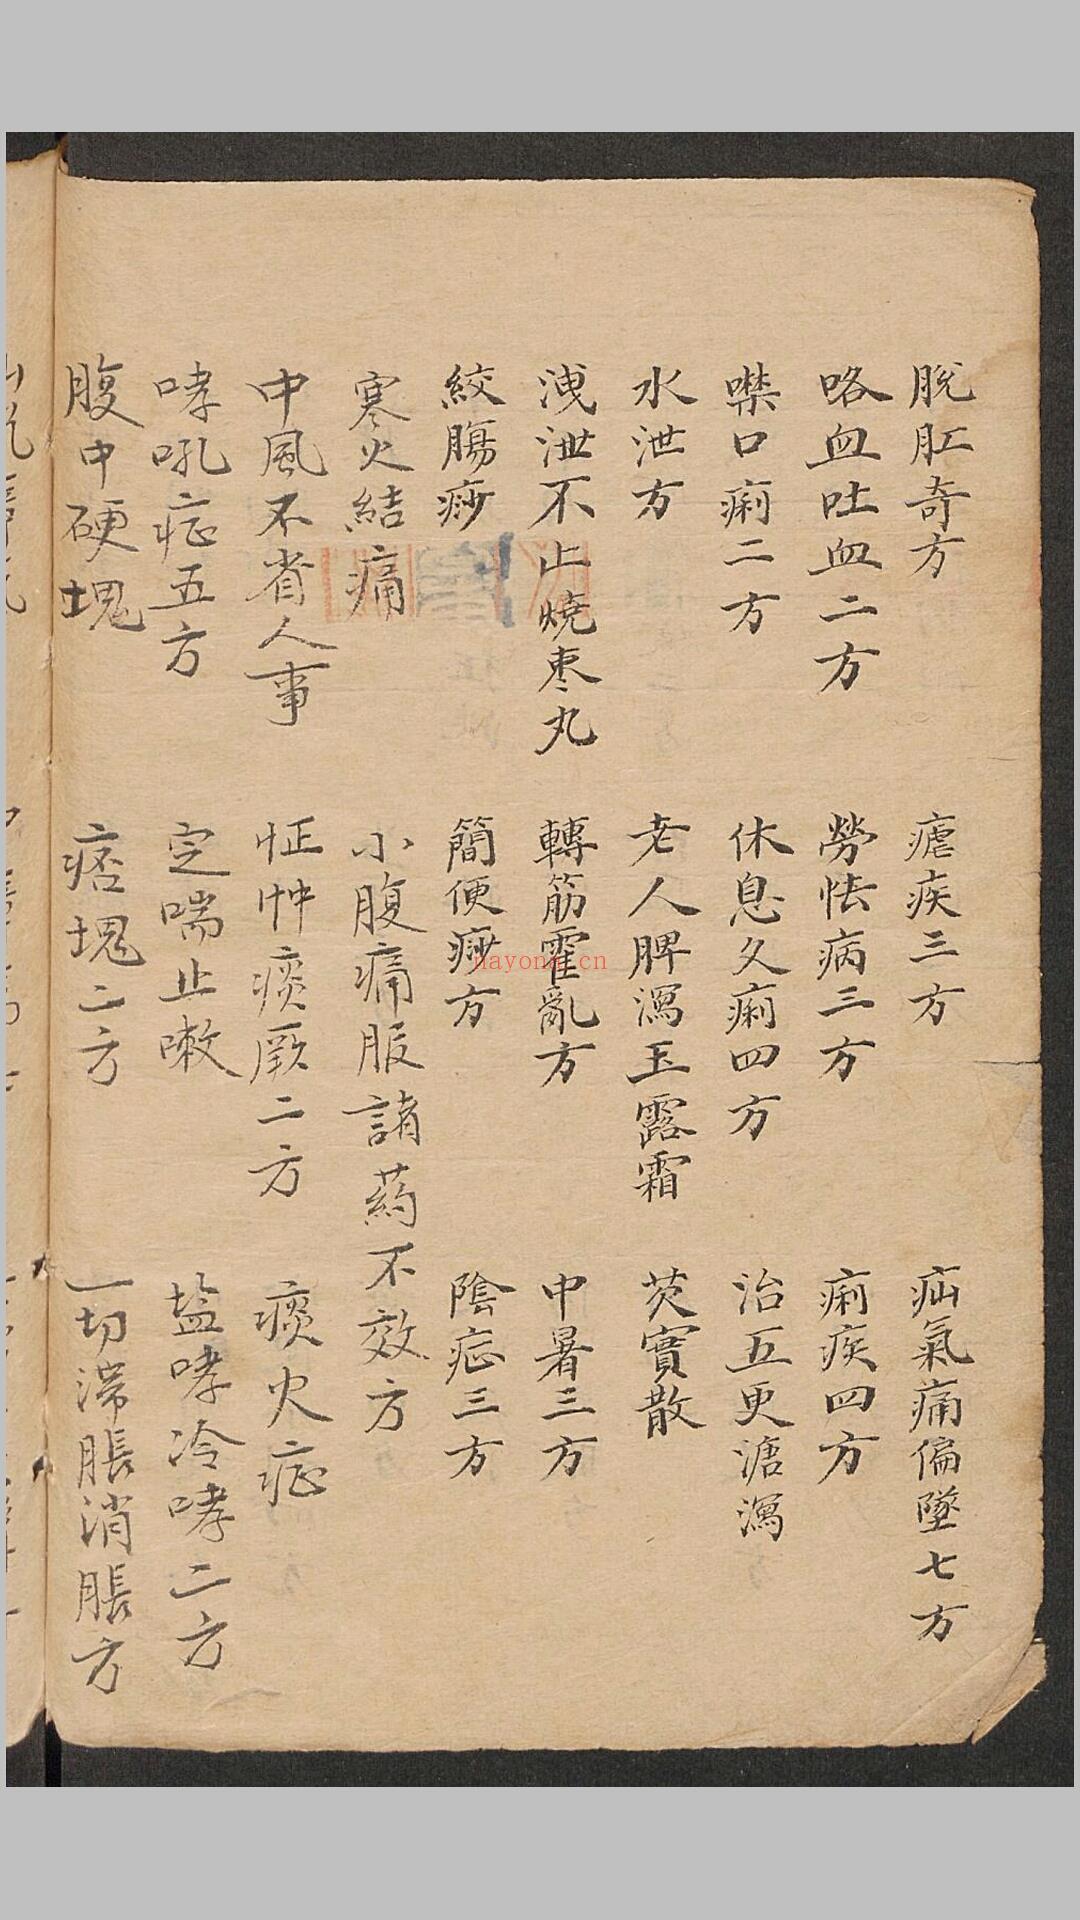 脫肛奇方 瘧疾三方 疝氣痛偏墜七方
咯血吐血二方 勞怯病三方 痢疾四方
噤口痢二方 休息久痢四方 治五更溏瀉
水泄方 老人脾瀉玉露霜 芡實散
洩泄不止燒枣丸 轉筋霍亂方 中暑三方
絞腸痧 簡便痧方 陰症三方
寒火結痛 小腹痛服諸药不效方
中風不省人事 怔忡痰厥二方 痰火症
哮吼症五方 定喘止嗽 盐哮冷哮二方
腹中硬塊 痞塊二方 一切滞脹消脹方
nayona.cn